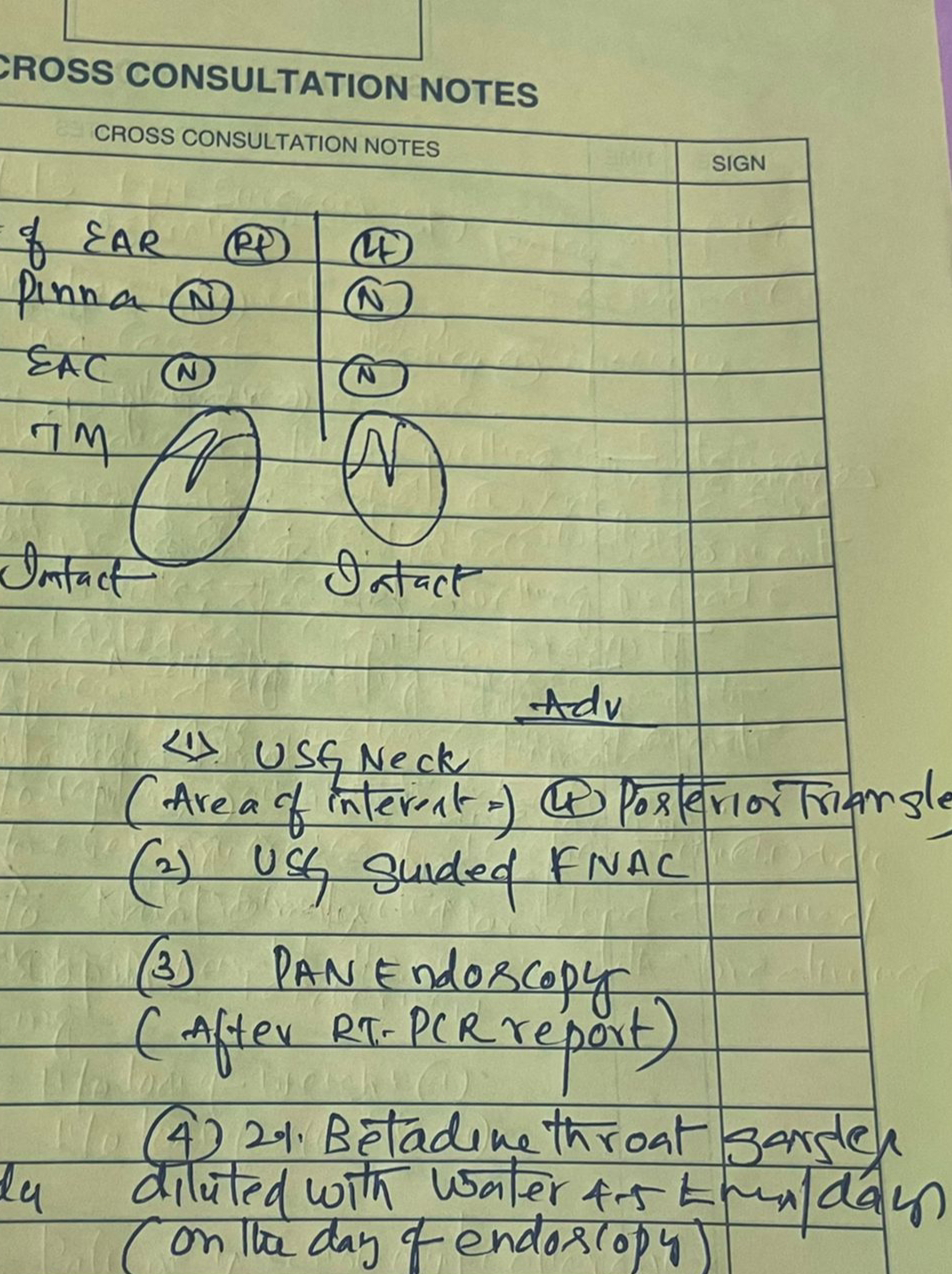 CROSS CONSULTATION NOTES
CROSS CONSULTATION NOTES SIGN
of EAR Rt Lt
Pinna N N
EAC N N
TM
Intact Intact
Adv
<1> USG Neck
(Area of interest =) Lt Posterior Triangle
(2) USG Guided FNAC
(3) PAN Endoscopy
(After RT-PCR report)
(4) 2% Betadine throat gargles
diluted with water 4-5 times/days
(on the day of endoscopy)